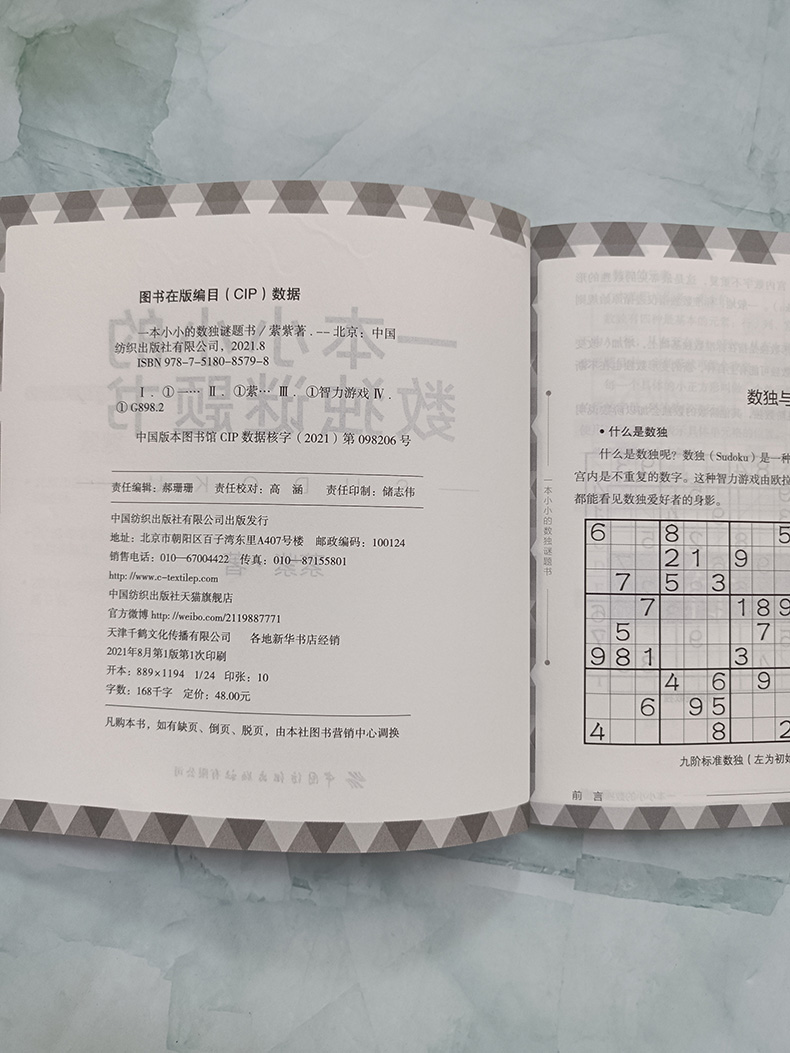 图书在版编目（CIP）数据
一本小小的数独谜题书／萦紫著．--北京：中国
纺织出版社有限公司，2021.8
ISBN 978-7-5180-8579-8
Ⅰ．①一… Ⅱ．①萦… Ⅲ．①智力游戏 Ⅳ．
①G898.2
中国版本图书馆 CIP 数据核字（2021）第 098206 号
责任编辑：郝珊珊　责任校对：高　涵　责任印制：储志伟
中国纺织出版社有限公司出版发行
地址：北京市朝阳区百子湾东里A407号楼　邮政编码：100124
销售电话：010—67004422　传真：010—87155801
http://www.c-textilep.com
中国纺织出版社天猫旗舰店
官方微博 http://weibo.com/2119887771
天津千鹤文化传播有限公司　各地新华书店经销
2021年8月第1版第1次印刷
开本：889×1194　1/24　印张：10
字数：168千字　定价：48.00元
凡购本书，如有缺页、倒页、脱页，由本社图书营销中心调换
一本小小的数独谜题书
数独与
• 什么是数独
什么是数独呢？数独（Sudoku）是一种
宫内是不重复的数字。这种智力游戏由欧拉
都能看见数独爱好者的身影。
6 8 5
2 1 9
7 5 3
7 1 8 9
5 7
9 8 1 3
4 6 9
6 9 5
4 8 2
九阶标准数独（左为初始
前　言